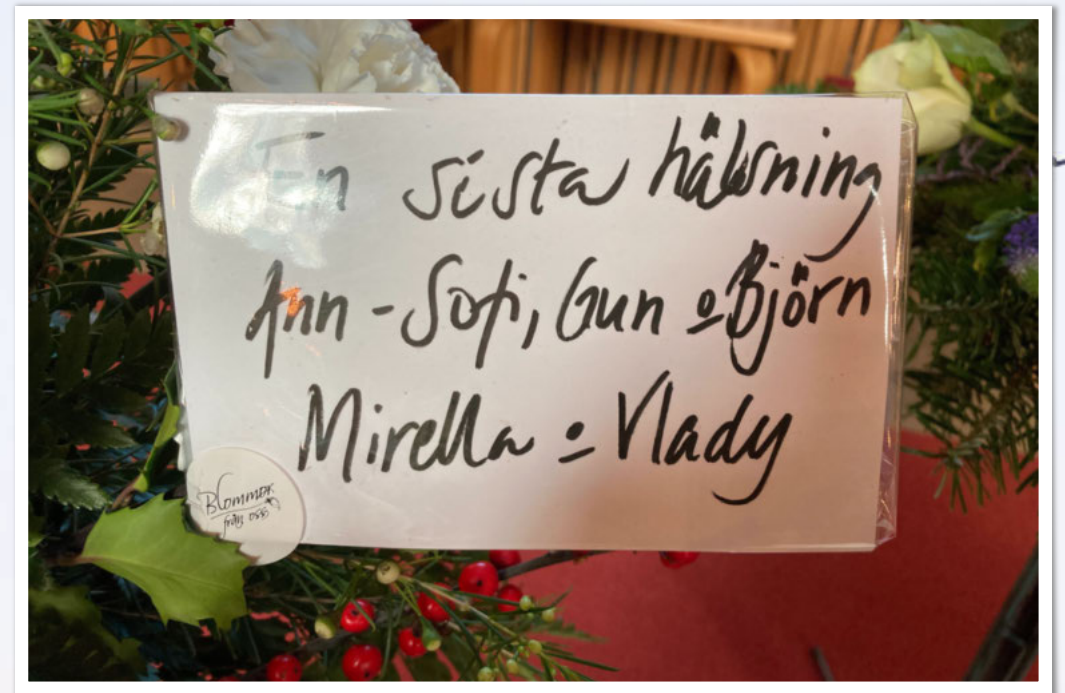 En sista hälsning
Ann-Sofi, Gun o Björn
Mirella o Vlady
Blommor
från oss